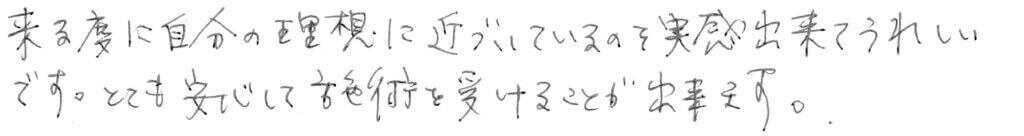 来る度に自分の理想に近づいているのを実感出来てうれしい
です。とても安心して施術を受けることが出来ます。